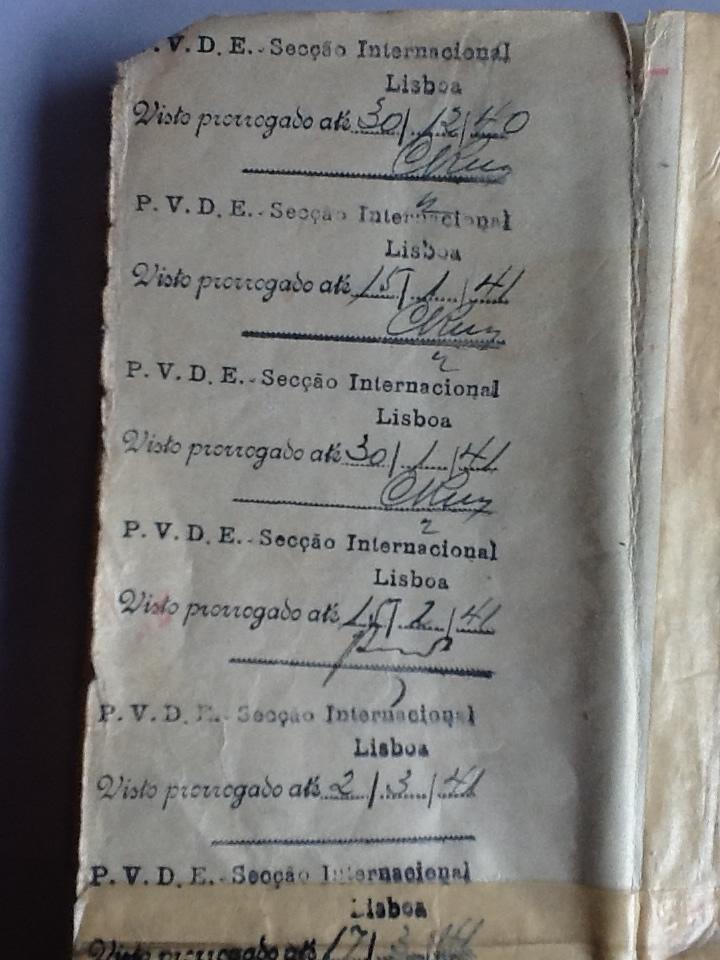 . V. D. E. - Secção Internacional
Lisboa
Visto prorrogado até 30/12/40
P. V. D. E. - Secção Internacional
Lisboa
Visto prorrogado até 15/1/41
P. V. D. E. - Secção Internacional
Lisboa
Visto prorrogado até 30/1/41
P. V. D. E. - Secção Internacional
Lisboa
Visto prorrogado até 15/2/41
P. V. D. E. - Secção Internacional
Lisboa
Visto prorrogado até 2/3/41
P. V. D. E. - Secção Internacional
Lisboa
Visto prorrogado até 17/3/41